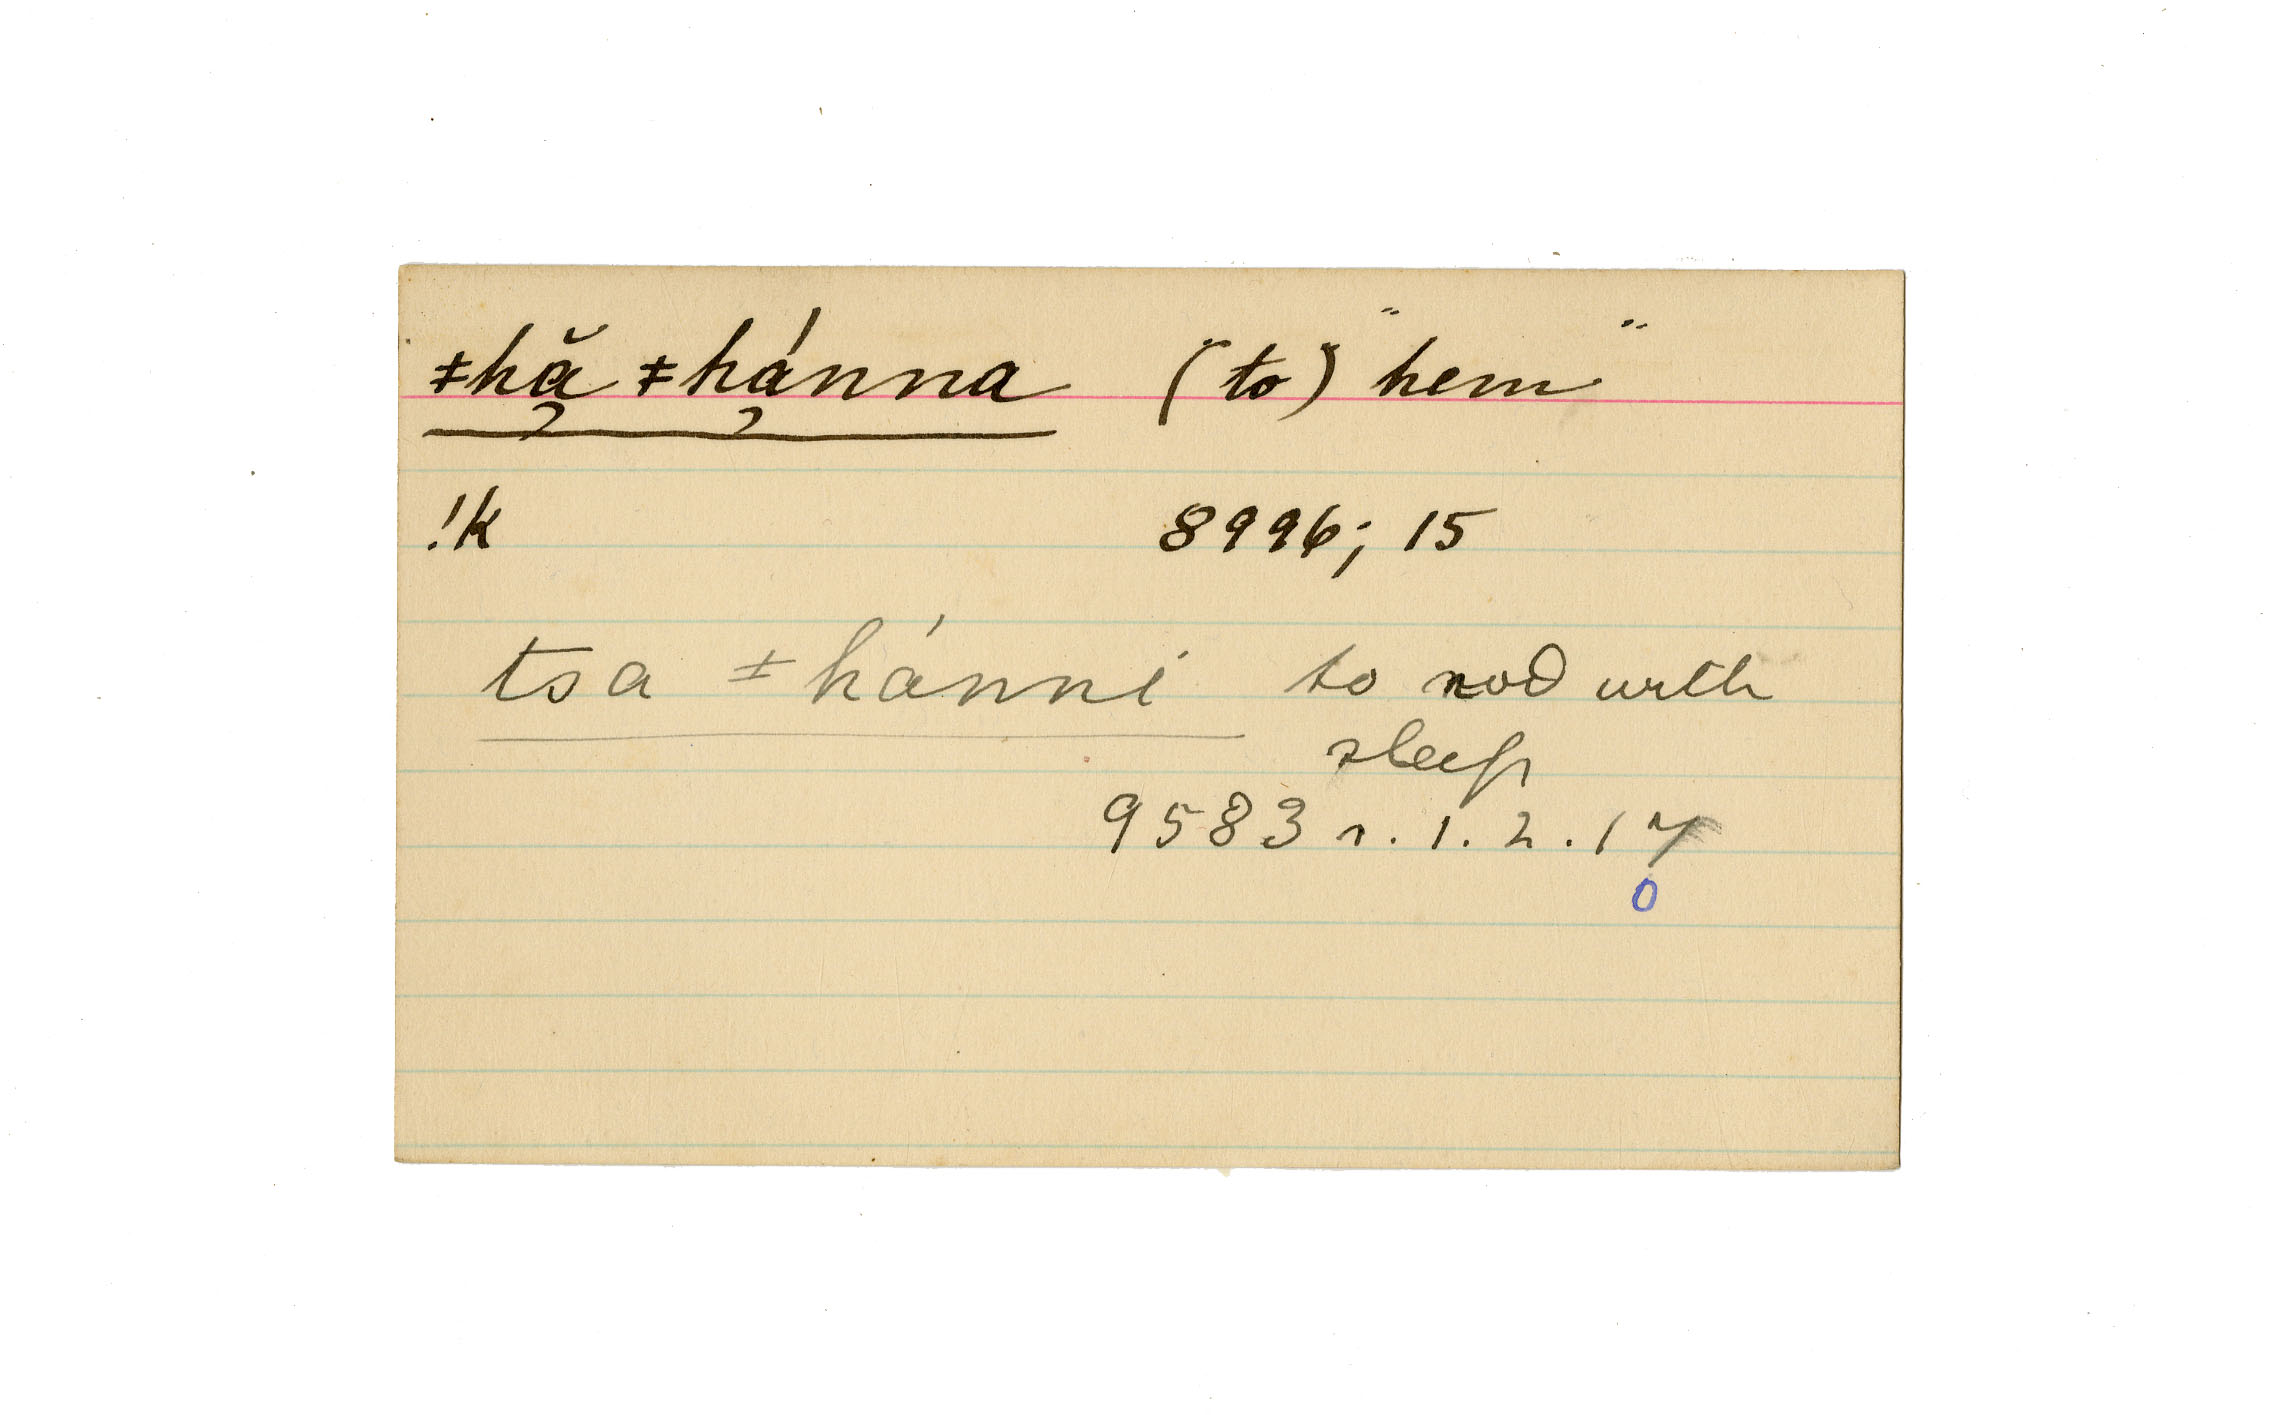 ǂhă̦ ǂhá̦nna (to) "hem"
!k 8996; 15
tsa ǂhánni to nod with
sleep
9583 r. 1. 2. 17
0